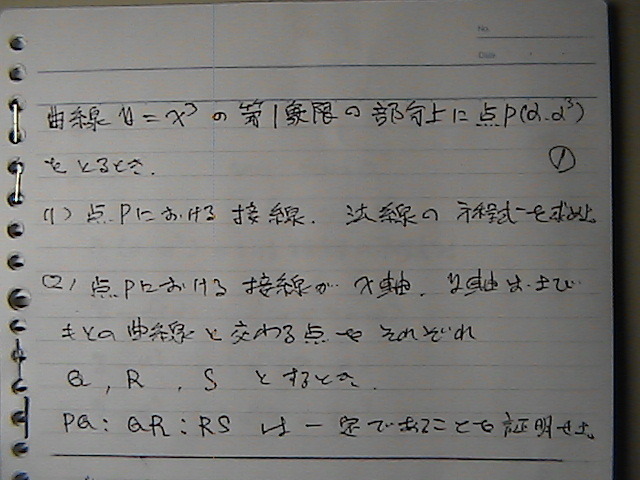 No.
Date
曲線 y = x³ の第1象限の部分上に点P(α.α³)
をとるとき. ①
(1) 点Pにおける接線. 法線の方程式を求めよ
(2) 点Pにおける接線が x軸. y軸および
もとの曲線と交わる点をそれぞれ
Q , R , S とするとき.
PQ : QR : RS は一定であることを証明せよ